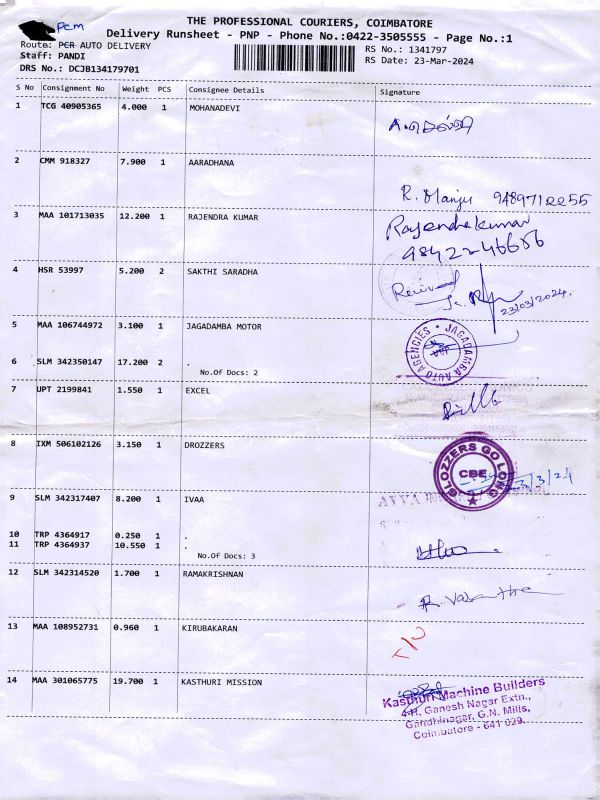 THE PROFESSIONAL COURIERS, COIMBATORE
Pcm
Delivery Runsheet - PNP - Phone No.:0422-3505555 - Page No.:1
Route: PCR AUTO DELIVERY
RS No.: 1341797
Staff: PANDI
RS Date: 23-Mar-2024
DRS No.: DCJB134179701
S No Consignment No Weight PCS Consignee Details Signature
1 TCG 40905365 4.000 1 MOHANADEVI
2 CMM 918327 7.900 1 AARADHANA
R. Manju 9489712255
3 MAA 101713035 12.200 1 RAJENDRA KUMAR
Rajendra kumar
9842246686
4 HSR 53997 5.200 2 SAKTHI SARADHA
Received
23/03/2024.
5 MAA 106744972 3.100 1 JAGADAMBA MOTOR
JAGADAMBA AUTO AGENCIES
6 SLM 342350147 17.200 2 .
No.Of Docs: 2
7 UPT 2199841 1.550 1 EXCEL
8 IXM 506102126 3.150 1 DROZZERS
GLOZZERS GO LONG
CBE
3/3/24
9 SLM 342317407 8.200 1 IVAA
10 TRP 4364917 0.250 1 .
11 TRP 4364937 10.550 1 .
No.Of Docs: 3
12 SLM 342314520 1.700 1 RAMAKRISHNAN
13 MAA 108952731 0.960 1 KIRUBAKARAN
14 MAA 301065775 19.700 1 KASTHURI MISSION
Kasthuri Machine Builders
4-H, Ganesh Nagar Extn.,
Gandhinagar, G.N. Mills,
Coimbatore - 641 029.